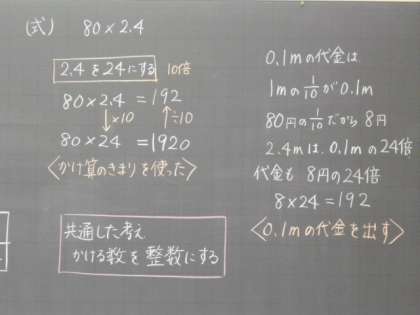 (式) 80×2.4
2.4を24にする 10倍
80×2.4=192
↓×10 ↑÷10
80×24=1920
〈かけ算のきまりを使った〉
共通した考え
かける数を整数にする
0.1mの代金は
1mの1/10が0.1m
80円の1/10だから8円
2.4mは、0.1mの24倍
代金も 8円の24倍
8×24=192
〈0.1mの代金を出す〉